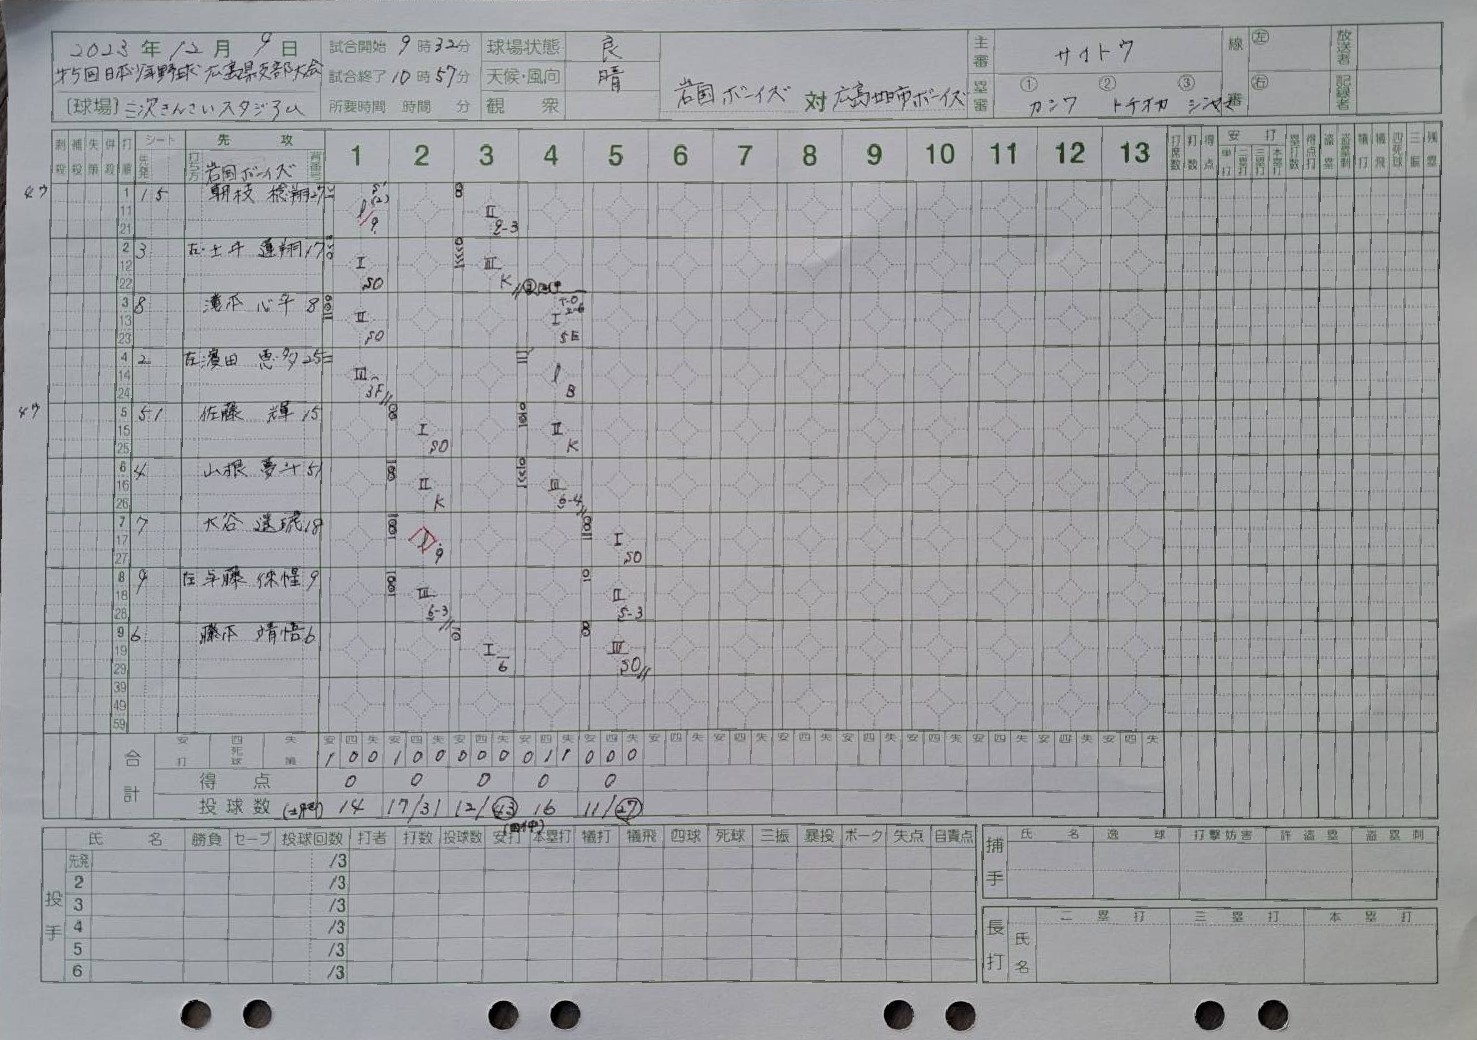 2023年12月9日 試合開始 9時32分 球場状態 良 主審 サイトウ 線審 左 放送者
第5回日本少年野球広島県支部大会 試合終了 10時57分 天候・風向 晴 岩国ボーイズ 対 広島廿日市ボーイズ 塁審 ① ② ③ 右 記録者
(球場) 三次きんさいスタジアム 所要時間 時間 分 観衆 カシワ トチオカ
刺殺 補殺 失策 併殺 打順 シート 先発 先攻 岩国ボーイズ 背番号 1 2 3 4 5 6 7 8 9 10 11 12 13 打席数 打数 得点 安打 単打 二塁打 三塁打 本塁打 塁打数 得点打 盗塁 盗塁刺 犠打 犠飛 四死球 三振 残塁
1 11 21 15 朝枝 27 l 9 II
2 12 22 3 左 土井 蓮翔 17 I SO III K
3 13 23 8 滝本 心平 8 II SO I 5E
4 14 24 2 左 濱田 25 III 3F l B
5 15 25 51 佐藤 輝 15 I SO II K
6 16 26 4 山根 夢斗 51 II K III 6-4
7 17 27 7 大谷 18 l 9 I SO
8 18 28 9 左 9 III 6-3 II 5-3
9 19 29 6 藤本 靖悟 6 I 6 III SO
39 49 59
合計 安打 四死球 失策 安 四 失 1 0 0 1 0 0 0 0 0 0 1 1 0 0 0
得点 0 0 0 0 0
投球数 14 17/31 12/43 16 11/27
氏名 勝負 セーブ 投球回数 打者 打数 投球数 安打 本塁打 犠打 犠飛 四球 死球 三振 暴投 ボーク 失点 自責点 捕手 氏名 逸球 打撃妨害 許盗塁 盗塁刺
投手 先発 /3
2 /3
3 /3
4 /3 長打 氏名 二塁打 三塁打 本塁打
5 /3
6 /3